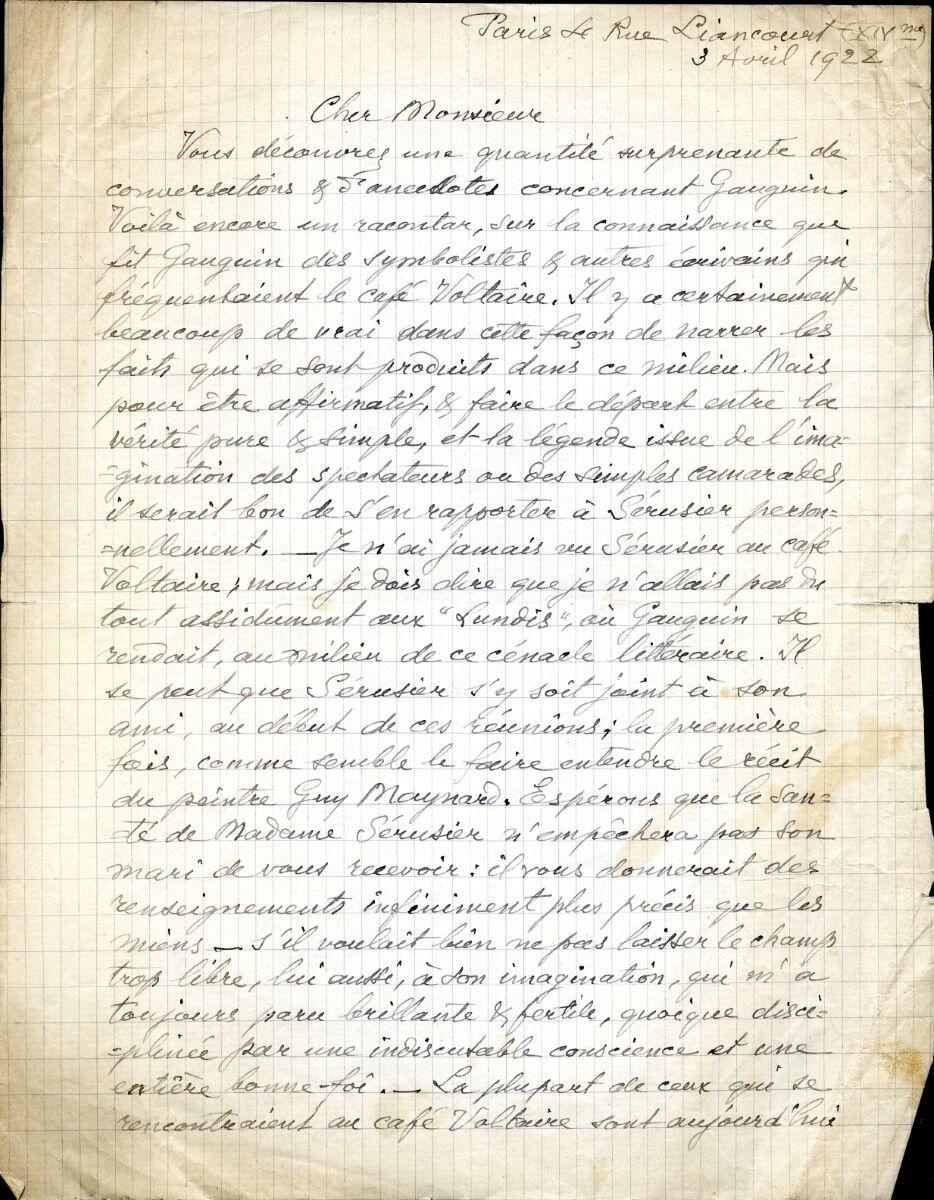 Paris 4 Rue Liancourt (XIVme)
3 Avril 1922
Cher Monsieur
Vous découvrez une quantité surprenante de
conversations & d'anecdotes concernant Gauguin.
Voilà encore un racontar, sur la connaissance que
fit Gauguin des symbolistes & autres écrivains qui
fréquentaient le café Voltaire. Il y a certainement
beaucoup de vrai dans cette façon de narrer les
faits qui se sont produits dans ce milieu. Mais
pour être affirmatif, & faire le départ entre la
vérité pure & simple, et la légende issue de l'ima=
=gination des spectateurs ou des simples camarades,
il serait bon de s'en rapporter à Sérusier person=
=nellement. — Je n'ai jamais vu Sérusier au café
Voltaire; mais je dois dire que je n'allais pas du
tout assidûment aux "Lundis", où Gauguin se
rendait, au milieu de ce cénacle littéraire. Il
se peut que Sérusier s'y soit joint à son
ami, au début de ces réunions; la première
fois, comme semble le faire entendre le récit
du peintre Guy Maynard. Espérons que la San=
=té de Madame Sérusier n'empêchera pas son
mari de vous recevoir: il vous donnerait des
renseignements infiniment plus précis que les
miens — s'il voulait bien ne pas laisser le champ
trop libre, lui aussi, à son imagination, qui m'a
toujours paru brillante & fertile, quoique disci=
=plinée par une indiscutable conscience et une
entière bonne-foi. — La plupart de ceux qui se
rencontraient au café Voltaire sont aujourd'hui